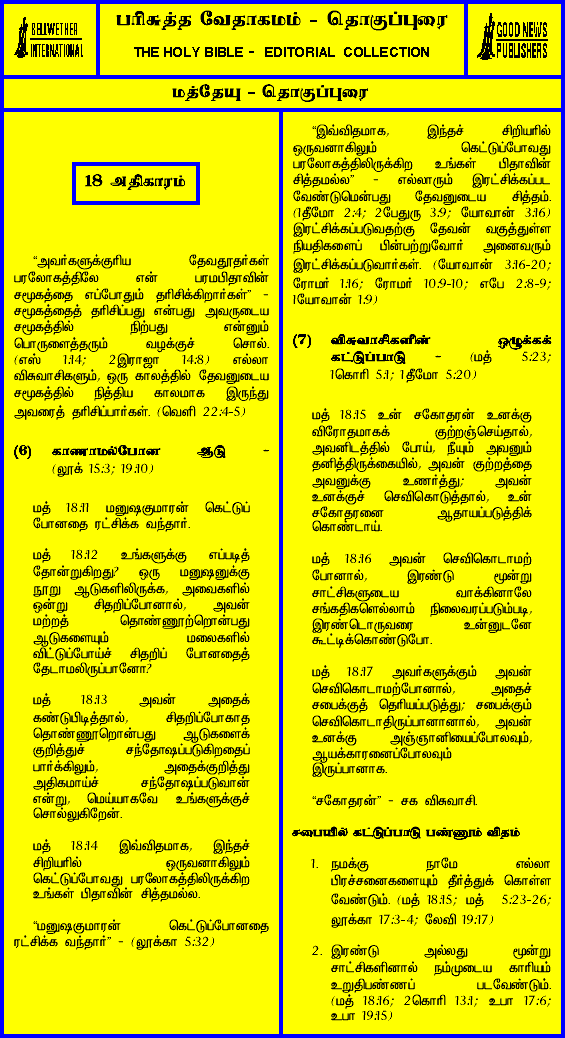 BELLWETHER
INTERNATIONAL
பரிசுத்த வேதாகமம் - தொகுப்புரை
THE HOLY BIBLE - EDITORIAL COLLECTION
GOOD NEWS
PUBLISHERS
மத்தேயு - தொகுப்புரை
18 அதிகாரம்
“அவர்களுக்குரிய தேவதூதர்கள்
பரலோகத்திலே என் பரமபிதாவின்
சமூகத்தை எப்போதும் தரிசிக்கிறார்கள்” -
சமூகத்தைத் தரிசிப்பது என்பது அவருடைய
சமூகத்தில் நிற்பது என்னும்
பொருளைத்தரும் வழக்குச் சொல்.
(எஸ் 1:14; 2இராஜா 14:8) எல்லா
விசுவாசிகளும், ஒரு காலத்தில் தேவனுடைய
சமூகத்தில் நித்திய காலமாக இருந்து
அவரைத் தரிசிப்பார்கள். (வெளி 22:4-5)
(6) காணாமல்போன ஆடு -
(லூக் 15:3; 19:10)
மத் 18:11 மனுஷகுமாரன் கெட்டுப்
போனதை ரட்சிக்க வந்தார்.
மத் 18:12 உங்களுக்கு எப்படித்
தோன்றுகிறது? ஒரு மனுஷனுக்கு
நூறு ஆடுகளிலிருக்க, அவைகளில்
ஒன்று சிதறிப்போனால், அவன்
மற்றத் தொண்ணூற்றொன்பது
ஆடுகளையும் மலைகளில்
விட்டுப்போய்ச் சிதறிப் போனதைத்
தேடாமலிருப்பானோ?
மத் 18:13 அவன் அதைக்
கண்டுபிடித்தால், சிதறிப்போகாத
தொண்ணூறொன்பது ஆடுகளைக்
குறித்துச் சந்தோஷப்படுகிறதைப்
பார்க்கிலும், அதைக்குறித்து
அதிகமாய்ச் சந்தோஷப்படுவான்
என்று, மெய்யாகவே உங்களுக்குச்
சொல்லுகிறேன்.
மத் 18:14 இவ்விதமாக, இந்தச்
சிறியரில் ஒருவனாகிலும்
கெட்டுப்போவது பரலோகத்திலிருக்கிற
உங்கள் பிதாவின் சித்தமல்ல.
“மனுஷகுமாரன் கெட்டுப்போனதை
ரட்சிக்க வந்தார்” - (லூக்கா 5:32)
“இவ்விதமாக, இந்தச் சிறியரில்
ஒருவனாகிலும் கெட்டுப்போவது
பரலோகத்திலிருக்கிற உங்கள் பிதாவின்
சித்தமல்ல” - எல்லாரும் இரட்சிக்கப்பட
வேண்டுமென்பது தேவனுடைய சித்தம்.
(1தீமோ 2:4; 2பேதுரு 3:9; யோவான் 3:16)
இரட்சிக்கப்படுவதற்கு தேவன் வகுத்துள்ள
நியதிகளைப் பின்பற்றுவோர் அனைவரும்
இரட்சிக்கப்படுவார்கள். (யோவான் 3:16-20;
ரோமர் 1:16; ரோமர் 10:9-10; எபே 2:8-9;
1யோவான் 1:9)
(7) விசுவாசிகளின் ஒழுக்கக்
கட்டுப்பாடு - (மத் 5:23;
1கொரி 5:1; 1தீமோ 5:20)
மத் 18:15 உன் சகோதரன் உனக்கு
விரோதமாகக் குற்றஞ்செய்தால்,
அவனிடத்தில் போய், நீயும் அவனும்
தனித்திருக்கையில், அவன் குற்றத்தை
அவனுக்கு உணர்த்து; அவன்
உனக்குச் செவிகொடுத்தால், உன்
சகோதரனை ஆதாயப்படுத்திக்
கொண்டாய்.
மத் 18:16 அவன் செவிகொடாமற்
போனால், இரண்டு மூன்று
சாட்சிகளுடைய வாக்கினாலே
சங்கதிகளெல்லாம் நிலைவரப்படும்படி,
இரண்டொருவரை உன்னுடனே
கூட்டிக்கொண்டுபோ.
மத் 18:17 அவர்களுக்கும் அவன்
செவிகொடாமற்போனால், அதைச்
சபைக்குத் தெரியப்படுத்து; சபைக்கும்
செவிகொடாதிருப்பானானால், அவன்
உனக்கு அஞ்ஞானியைப்போலவும்,
ஆயக்காரனைப்போலவும்
இருப்பானாக.
“சகோதரன்” - சக விசுவாசி.
சபையில் கட்டுப்பாடு பண்ணும் விதம்
1. நமக்கு நாமே எல்லா
பிரச்சனைகளையும் தீர்த்துக் கொள்ள
வேண்டும். (மத் 18:15; மத் 5:23-26;
லூக்கா 17:3-4; லேவி 19:17)
2. இரண்டு அல்லது மூன்று
சாட்சிகளினால் நம்முடைய காரியம்
உறுதிபண்ணப் படவேண்டும்.
(மத் 18:16; 2கொரி 13:1; உபா 17:6;
உபா 19:15)